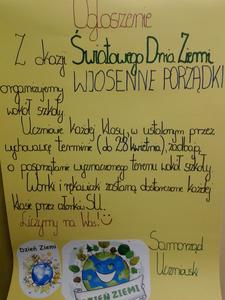 Ogłoszenie
Z okazji Światowego Dnia Ziemi
organizujemy WIOSENNE PORZĄDKI
wokół szkoły.
Uczniowie każdej klasy w ustalonym przez
wychowawcę terminie (do 28 kwietnia), zadbają
o posprzątanie wyznaczonego terenu wokół szkoły.
Worki i rękawiczki zostaną dostarczone każdej
klasie przez członków SU.
Liczymy na Was!
Samorząd
Uczniowski
Dzień Ziemi
DZIEŃ ZIEMI